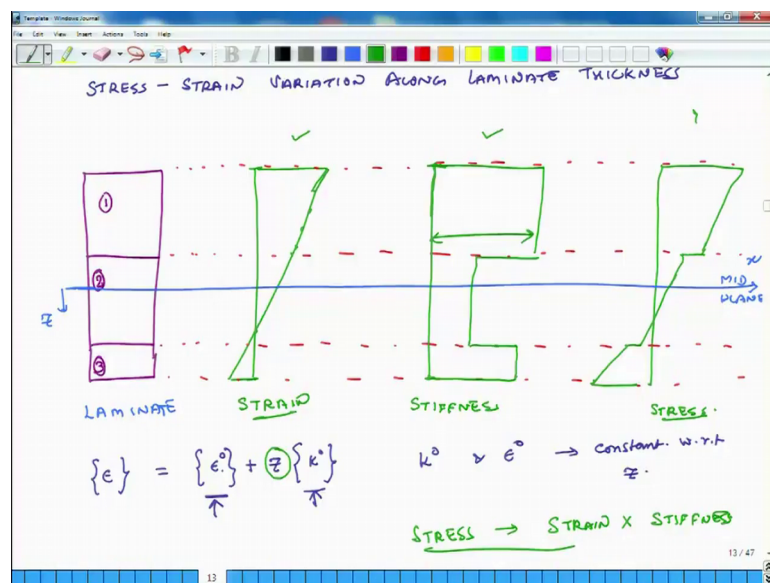 Template - Windows Journal
File Edit View Insert Actions Tools Help
B I
STRESS - STRAIN VARIATION ALONG LAMINATE THICKNESS
①
②
③
x
MID
PLANE
Z
LAMINATE STRAIN STIFFNESS STRESS.
{ε} = {ε°} + Z {k°} k° & ε° → constant. w.r.t
Z.
STRESS → STRAIN X STIFFNESS
13 / 47
13